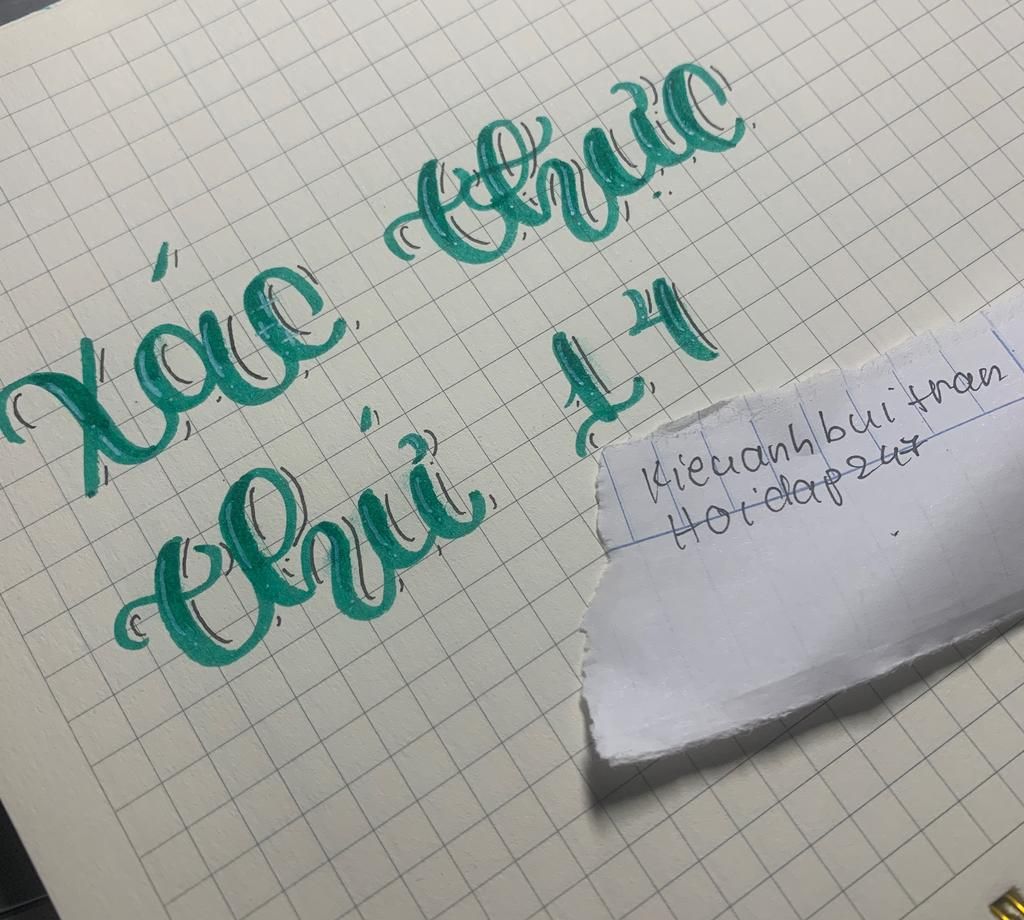 Xác thực
thứ 14
Kieuanhbuitran
Hoidap247